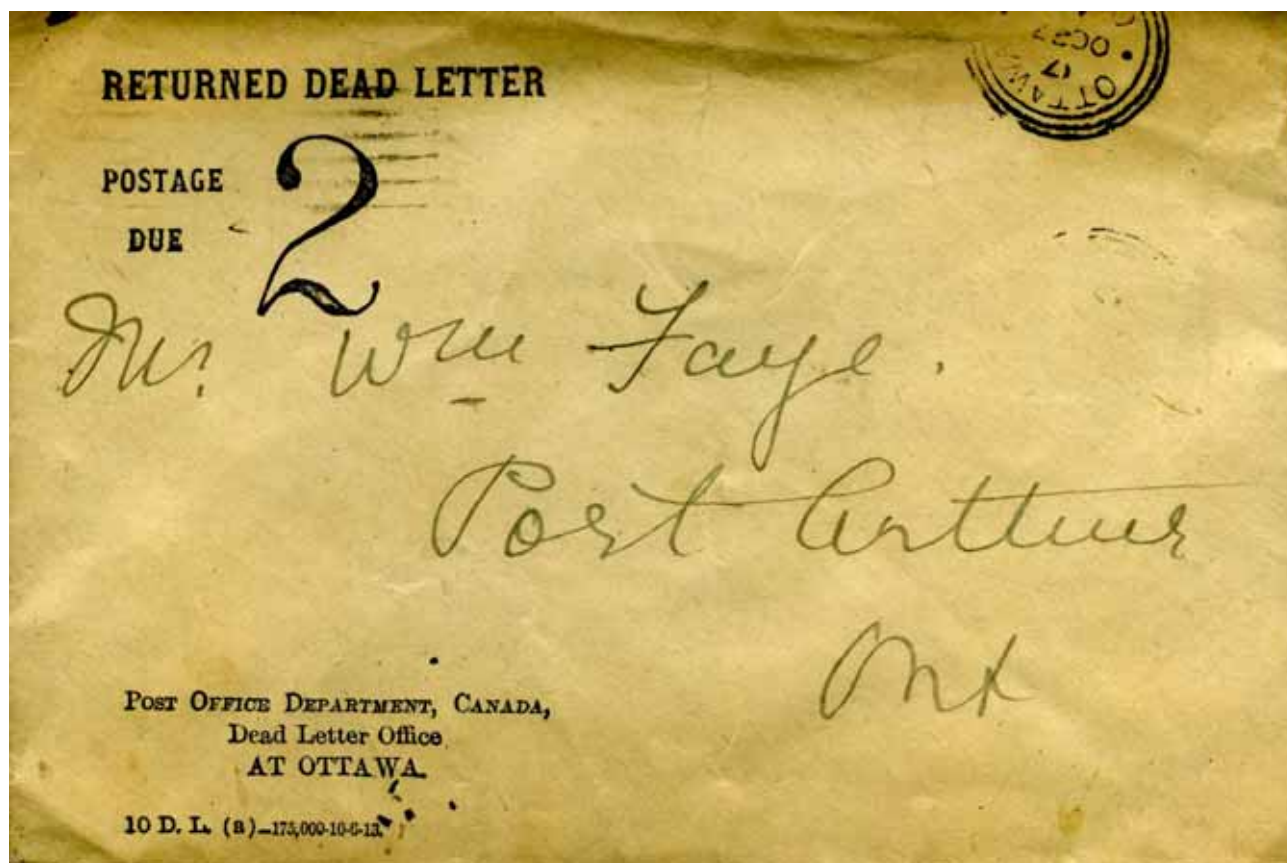 RETURNED DEAD LETTER
POSTAGE
DUE
2
OTTAWA
17
OC 27
Mr. Wm Faye.
Port Arthur
Ont
POST OFFICE DEPARTMENT, CANADA,
Dead Letter Office
AT OTTAWA.
10 D. L. (a)—175,000-10-6-13.